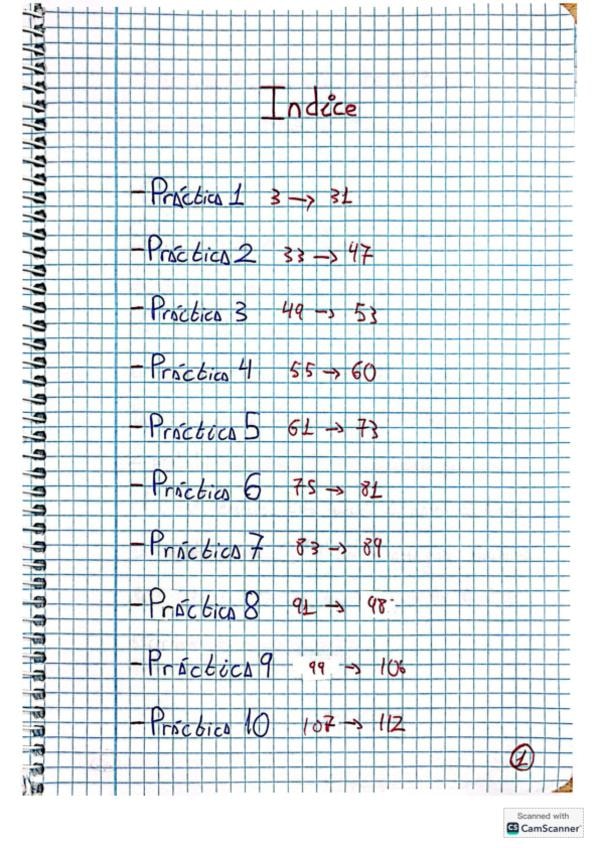 Indice
- Práctica 1 3 → 31
- Práctica 2 33 → 47
- Práctica 3 49 → 53
- Práctica 4 55 → 60
- Práctica 5 61 → 73
- Práctica 6 75 → 81
- Práctica 7 83 → 89
- Práctica 8 91 → 98
- Práctica 9 99 → 106
- Práctica 10 107 → 112
1
Scanned with
CS CamScanner